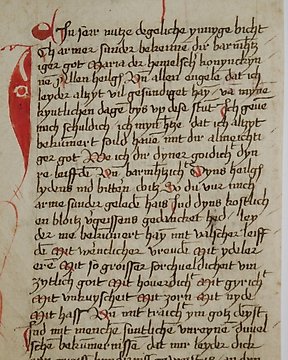 Diſ ſatz nutze degeliche ynnyge bicht
Ich armer sunder bekenne dir barmhtz
iger got Maria der hemelsch konynckyn
ne Allen heilgē Vn allen engele dat ich
leyder altzyt vil gesundiget hay va myne
kyntlichen dage bys vp dese stut Ich geue
mich schuldich ich mynt htze dat ich altzyt
bekumert sold haue mit dir almechti
ger got We ich dir dyner goidich dyn
re leiffde Vn barmhtzich Dyns heilgē
lydens nd bitten dotz So du vur mich
arme sunder gelede hais sud dyns kostlich
en bloitz vgeissens gedanchet hed ley
der me bekumert hay mit valscher leiff
de Mit wentlicher vreude Mit ydeler
ere Mit so groisser sorchueldicheit vm
zytlich goit Mit houerdich Mit gyrich
Mit vnkuyscheit Mit zorn Mit nyde
Mit hass Vn mit traich ym gotz deyst
sud mit menche suntliche vnreyne duuel
sche bekumernisse dat mir leyder dich